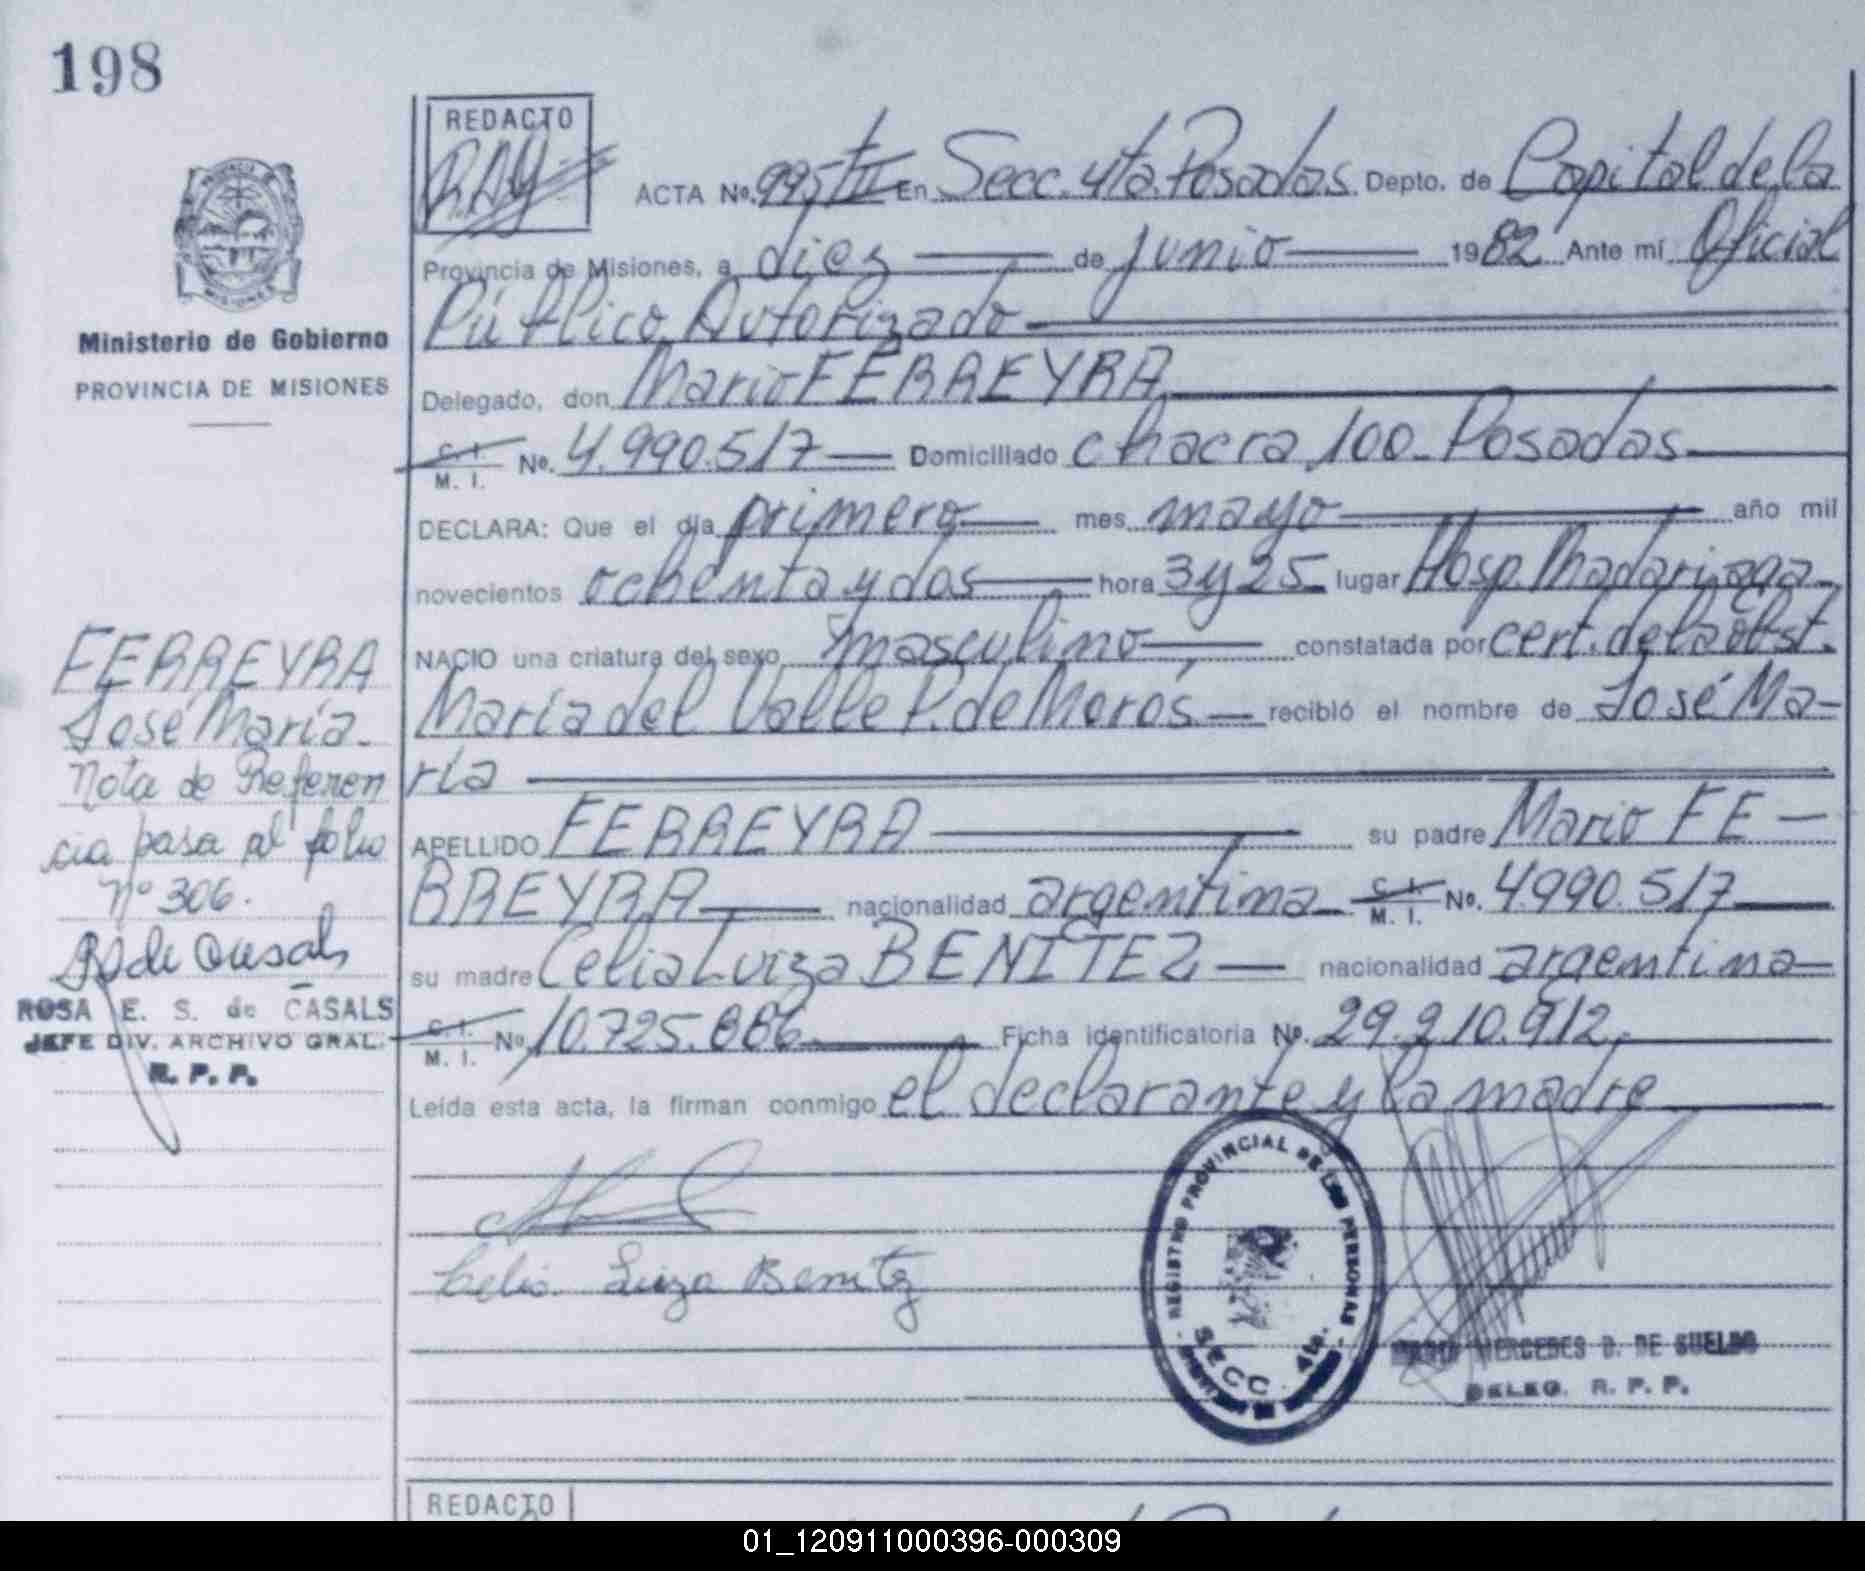 198
REDACTO
ACTA No. 995 tº II En Secc. 4ta. Posadas. Depto. de Capital de la
Provincia de Misiones, a diez de junio 1982 Ante mí Oficial
Público Autorizado
Delegado, don Mario FERREYRA
C. I.
M. I. No. 4.990.517 Domiciliado chacra 100- Posadas
DECLARA: Que el día primero mes mayo año mil
novecientos ochenta y dos hora 3 y 25 lugar Hosp. Madariaga
NACIO una criatura del sexo masculino constatada por cert. de la obst.
María del Valle P. de Morós recibió el nombre de José Ma-
ría
APELLIDO FERREYRA su padre Mario FE-
RREYRA nacionalidad argentina C. I.
M. I. No. 4.990.517
su madre Celia Luiza BENITEZ nacionalidad argentina
C. I.
M. I. No. 10.725.886 Ficha identificatoria No. 29.210.912.
Leída esta acta, la firman conmigo el declarante y la madre
Celia Luiza Benitez
REGISTRO PROVINCIAL DE LAS PERSONAS
SECC. 4ta.
MERCEDES D. DE SUELDO
DELEG. R. P. P.
PROVINCIA DE
MISIONES
Ministerio de Gobierno
PROVINCIA DE MISIONES
FERREYRA
José María
Nota de Referen
cia pasa al folio
nº 306.
ROSA E. S. de CASALS
JEFE DIV. ARCHIVO GRAL.
R. P. P.
REDACTO
01_120911000396-000309